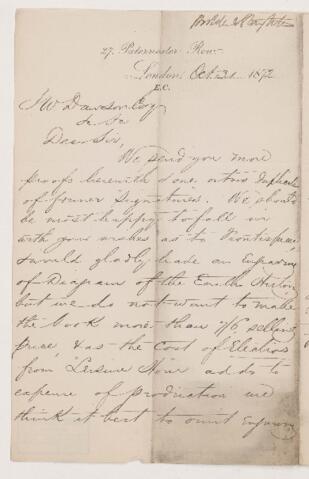 27, Paternoster Row
London Oct 21 1872
E.C.
J W Dawson Esq
Dear Sir,
We send you more
proofs herewith & one extra Duplicate
of former Signatures. We should
be most happy to fall in
with your wishes as to Frontispiece
& would gladly have an Engraving
of Diagram of the Earth's History
but we do not want to make
the book more than 7/6 selling
price, & as the cost of
from "Leisure Hour" adds to
expense of production we
think it best to omit Engraving